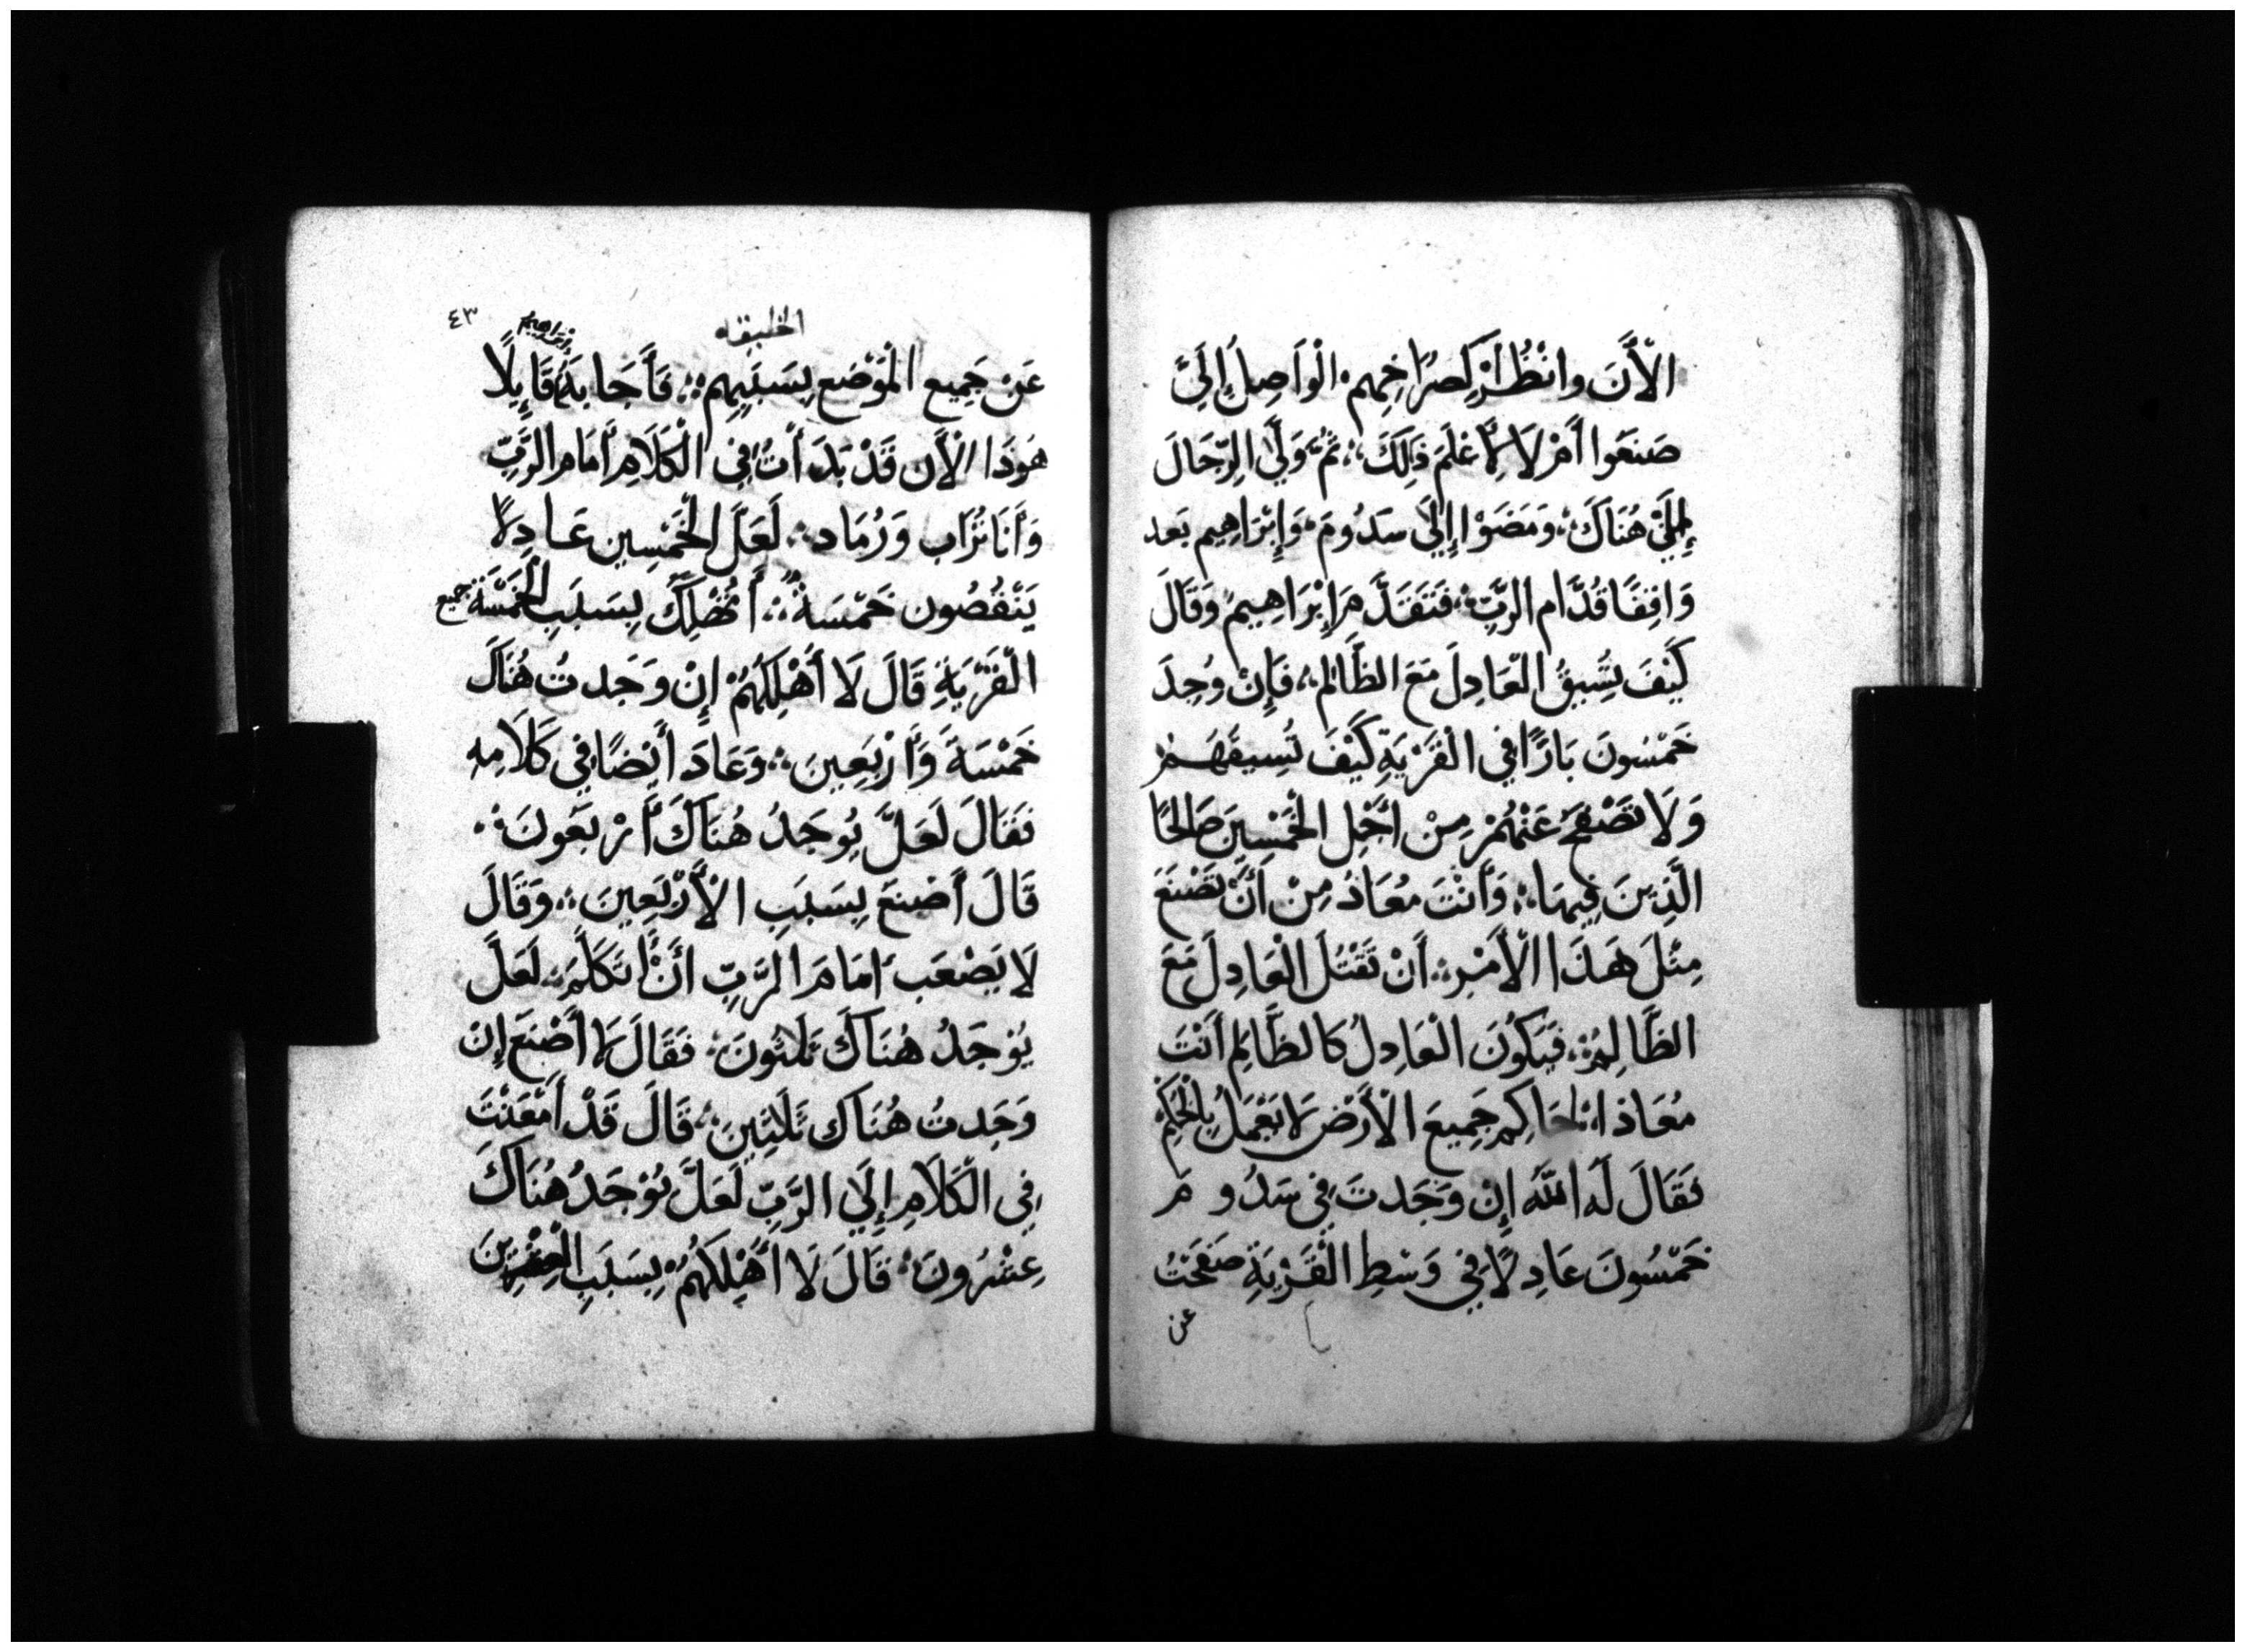 الْأَنَ وانْظُرْ لِصُرَاخِهِم الْوَاصِلَ إِلَيَّ
صَنَعَوا أَمْ لَا لِأَعْلَمَ ذَلِكَ؛ ثُمَّ وَلَّي الرِّجَال
إِلَيَ هُنَاكَ؛ وَمَضَوْا إِلَيَ سَدُومَ؛ وَإِبْرَاهِيم بَعد
وَاقِفًا قُدَّام الرَّبِّ؛ فَتَقَدَّمَ إِبْرَاهِيمُ وَقَالَ
كَيْفَ تُسِيقُ الْعَادِلَ مَعَ الظَّالِم؛ فَإِنْ وُجِدَ
خَمْسُونَ بَارًّا فِي الْقَرْيَةِ كَيْفَ تُسِيقَهُمْ
وَلَا تَصْفَحَ عَنْهُمْ مِنْ أَجْلِ الْخَمْسِينَ صَالِحًا
الَّذِينَ فِيهَا؛ وَأَنْتَ مُعَاذُ مِنْ أَنْ تَصْنَعَ
مِثْلَ هَذَا الْأَمْرِ؛ أَنْ تَقْتُلَ الْعَادِلَ مَعَ
الظَّالِمِ؛ فَيَكُونَ الْعَادِلُ كَالظَّالِمِ أَنْتَ
مُعَاذ الْحَاكِم جَمِيعَ الْأَرْضِ لَا يَعْمَلُ بِالْحُكْمِ
فَقَالَ لَهُ اللَّهُ إِن وَجَدتَ فِي سَدُومَ
خَمْسُونَ عَادِلًا فِي وَسْطِ الْقَرْيَةِ صَفَحْتُ
عن
الخليقه
٤٣
عَنْ جَمِيعِ الْمَوْضَعِ بِسَبَبِهِم؛ فَأَجَابَهُ إبراهيم قَايِلًا
هَوذَا الْأَن قَدْ بَدَأْتُ فِي الْكَلَامِ أَمَام الرَّبِّ
وَأَنَا تُرَاب وَرُمَاد؛ لَعَلَّ الْخَمْسِين عَادِلًا
يَنْقُصُون خَمْسَةً؛ أَتُهْلِكَ بِسَبَبِ الْخَمْسَةِ جميع
الْقَرْيَةِ قَالَ لَا أُهْلِكَهُمْ إِنْ وَجَدتُ هُنَاكَ
خَمْسَةَ وَأَرْبَعِينَ؛ وَعَادَ أَيْضًا فِي كَلَامِهِ
فَقَالَ لَعَلَّ يُوجَدُ هُنَاكَ أَرْبَعَونَ؛
قَالَ أَصْنَعَ بِسَبَبِ الْأَرْبَعِينَ؛ وَقَالَ
لَا يَصْعَب أَمَامَ الرَّبِّ أَنْ أَتَكَلَّمَ؛ لَعَلَّ
يُوْجَدُ هُنَاكَ ثَلَاثُونَ؛ فَقَالَ لَا أَصْنَعَ إِنْ
وَجَدتُ هُنَاكَ ثَلَاثِينَ؛ قَالَ قَدْ أَمْعَنْتَ
فِي الْكَلَامِ إِلَيَ الرَّبِّ لَعَلَّ يُوْجَدُ هُنَاكَ
عِشْرُونَ؛ قَالَ لَا أُهْلِكَهُمْ بِسَبَبِ الْعِشْرِينَ